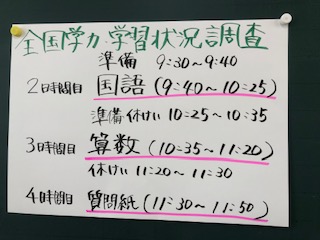 全国学力・学習状況調査
準備 9:30~9:40
2時間目 国語 (9:40~10:25)
準備・休けい 10:25~10:35
3時間目 算数 (10:35~11:20)
休けい 11:20~11:30
4時間目 質問紙 (11:30~11:50)